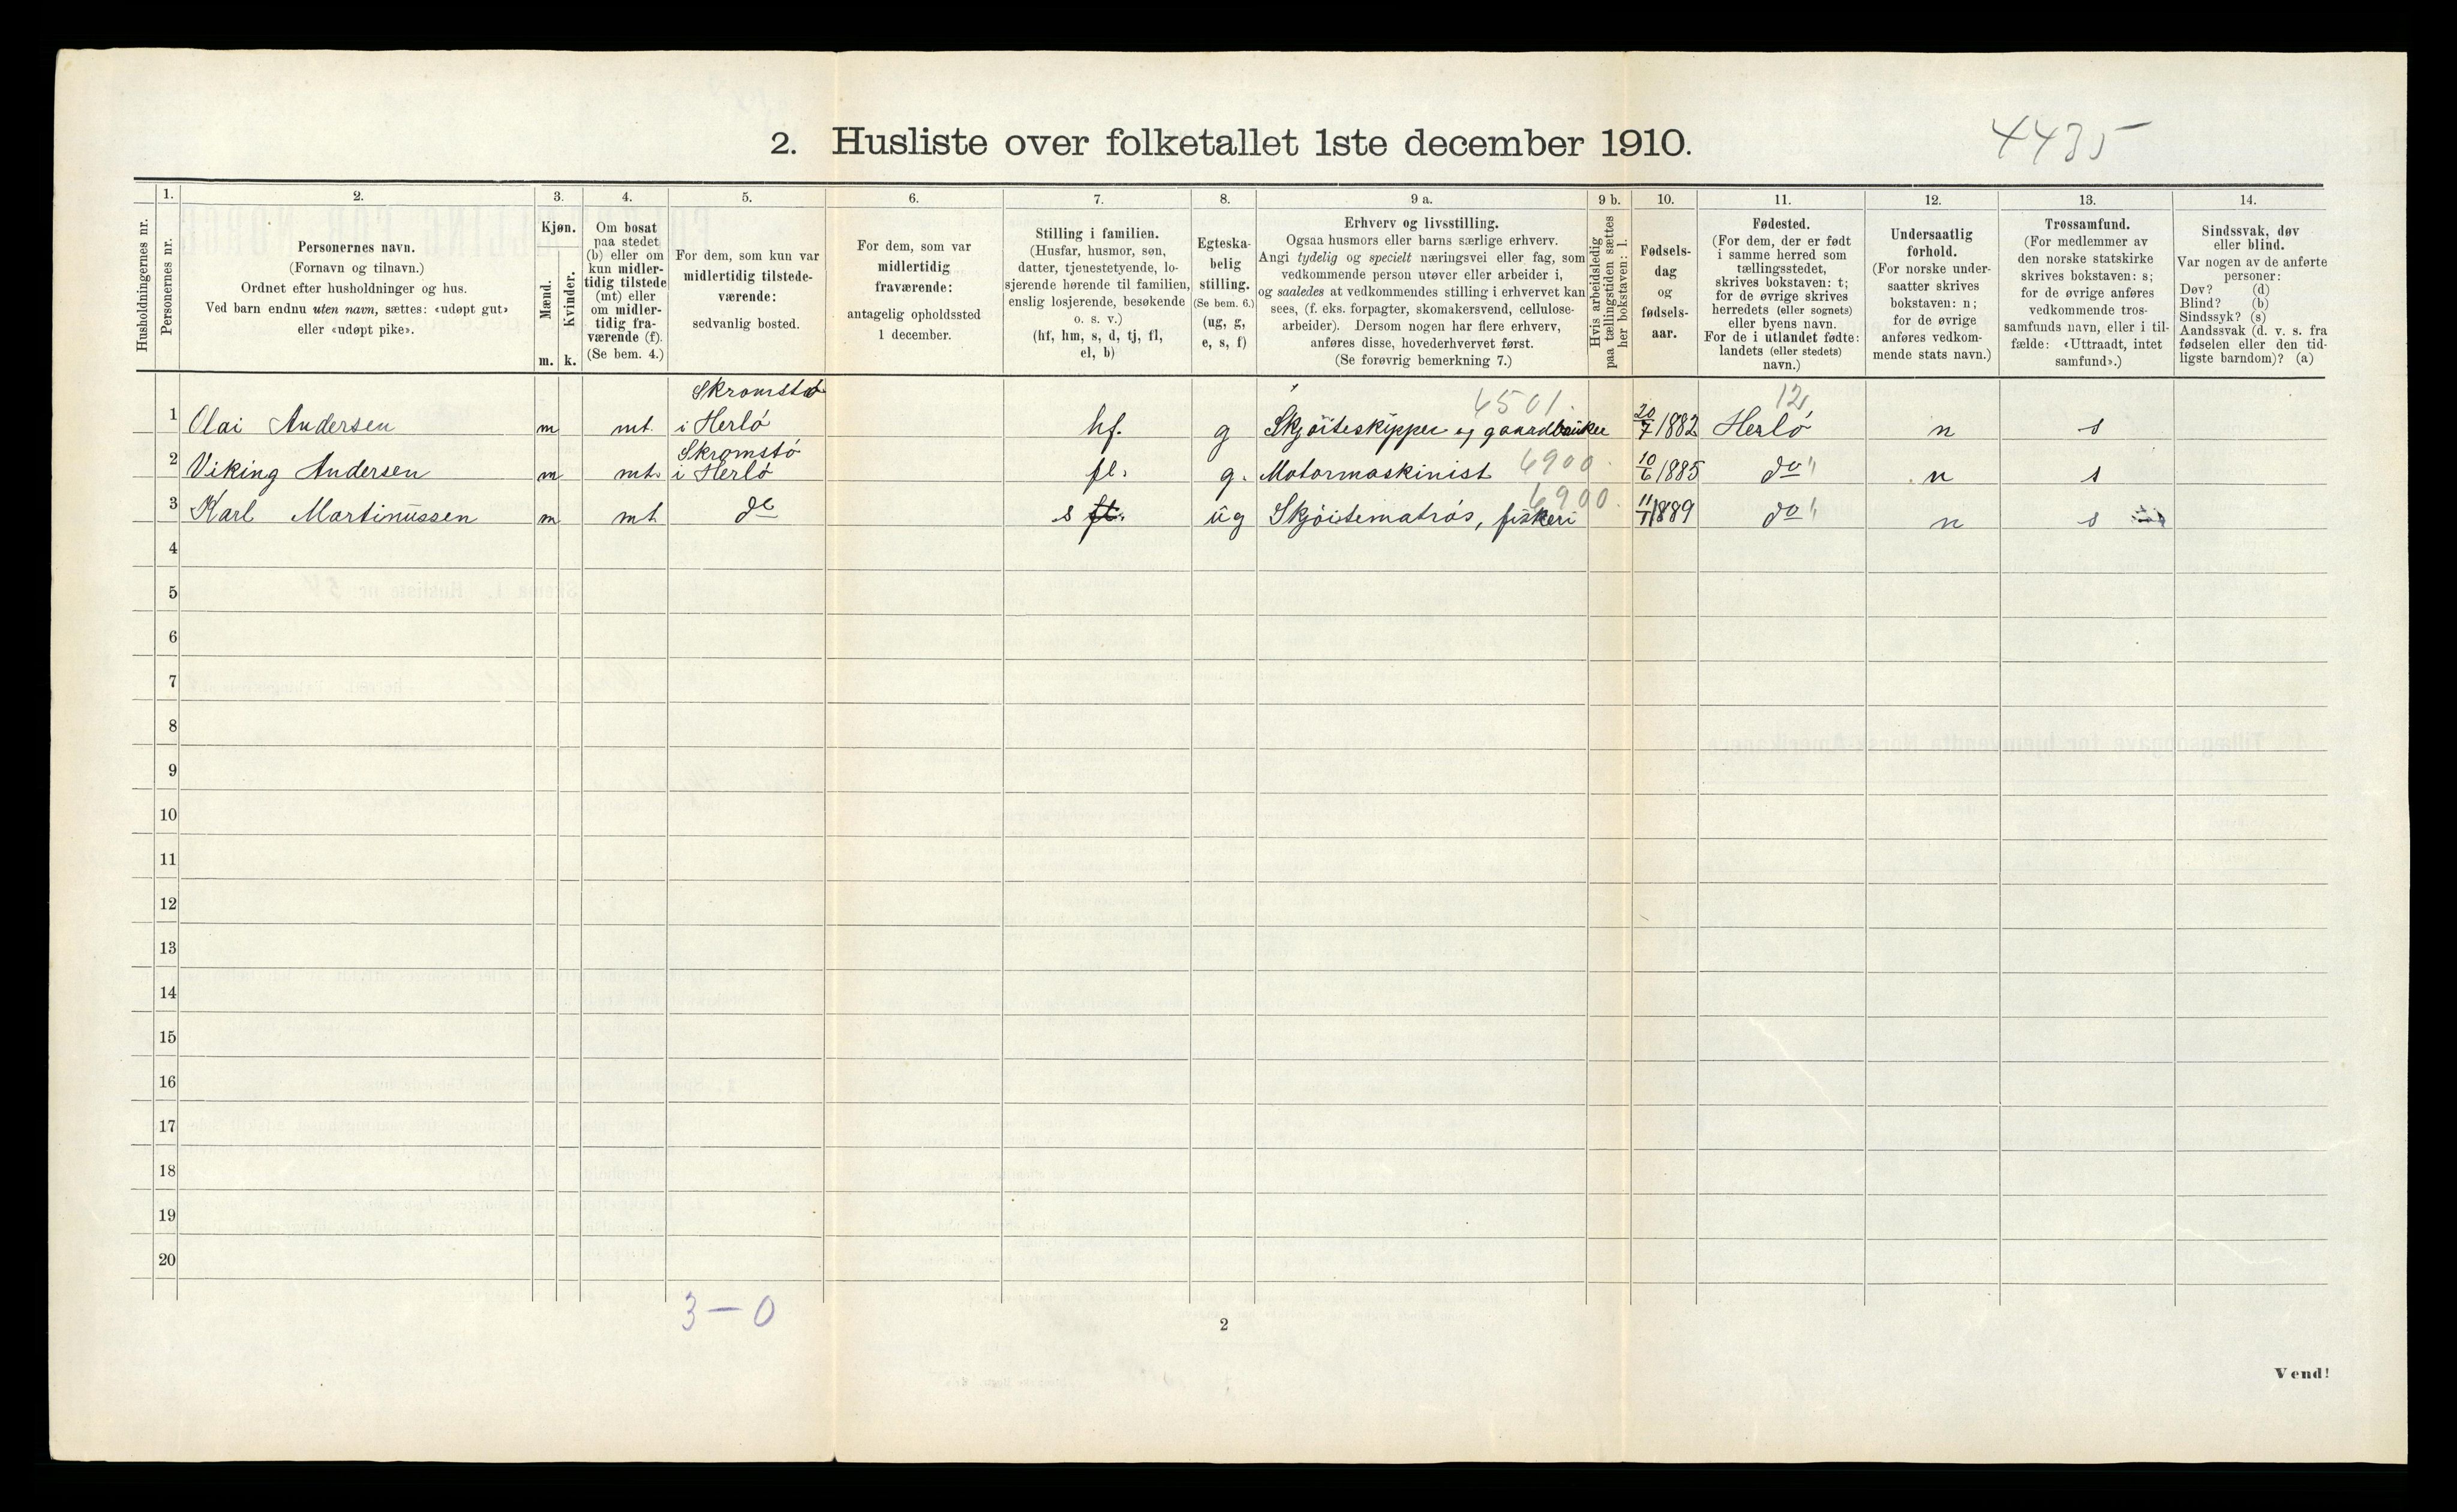 2. Husliste over folketallet 1ste december 1910.
4435
Husholdningernes nr.
1.
Personernes nr.
2.
Personernes navn.
(Fornavn og tilnavn.)
Ordnet efter husholdninger og hus.
Ved barn endnu uten navn, sættes: «udøpt gut»
eller «udøpt pike».
3.
Kjøn.
Mænd.
Kvinder.
m. k.
4.
Om bosat
paa stedet
(b) eller om
kun midler-
tidig tilstede
(mt) eller
om midler-
tidig fra-
værende (f).
(Se bem. 4.)
5.
For dem, som kun var
midlertidig tilstede-
værende:
sedvanlig bosted.
6.
For dem, som var
midlertidig
fraværende:
antagelig opholdssted
1 december.
7.
Stilling i familien.
(Husfar, husmor, søn,
datter, tjenestetyende, lo-
sjerende hørende til familien,
enslig losjerende, besøkende
o. s. v.)
(hf, hm, s, d, tj, fl,
el, b)
8.
Egteska-
belig
stilling.
(Se bem. 6.)
(ug, g,
e, s, f)
9 a.
Erhverv og livsstilling.
Ogsaa husmors eller barns særlige erhverv.
Angi tydelig og specielt næringsvei eller fag, som
vedkommende person utøver eller arbeider i,
og saaledes at vedkommendes stilling i erhvervet kan
sees, (f. eks. forpagter, skomakersvend, cellulose-
arbeider). Dersom nogen har flere erhverv,
anføres disse, hovederhvervet først.
(Se forøvrig bemerkning 7.)
9 b.
Hvis arbeidsledig
paa tællingstiden sættes
her bokstaven: l.
10.
Fødsels-
dag
og
fødsels-
aar.
11.
Fødested.
(For dem, der er født
i samme herred som
tællingsstedet,
skrives bokstaven: t;
for de øvrige skrives
herredets (eller sognets)
eller byens navn.
For de i utlandet fødte:
landets (eller stedets)
navn.)
12.
Undersaatlig
forhold.
(For norske under-
saatter skrives
bokstaven: n;
for de øvrige
anføres vedkom-
mende stats navn.)
13.
Trossamfund.
(For medlemmer av
den norske statskirke
skrives bokstaven: s;
for de øvrige anføres
vedkommende tros-
samfunds navn, eller i til-
fælde: «Uttraadt, intet
samfund».)
14.
Sindssvak, døv
eller blind.
Var nogen av de anførte
personer:
Døv? (d)
Blind? (b)
Sindssyk? (s)
Aandssvak (d. v. s. fra
fødselen eller den tid-
ligste barndom)? (a)
Skromstø 4501. 12
1 Olai Andersen m mt i Herlö hf. g Skjöiteskipper og gaardbruker 20/7 1882 Herlö n s
Skromstö
2 Viking Andersen m mt. i Herlö fl. g. Motormaskinist 6900 10/6 1885 do n s
3 Karl Martinussen m mt do s fl. ug Skjöitematros, fiskeri 6900 11/1 1889 do n s
4
5
6
7
8
9
10
11
12
13
14
15
16
17
18
19
20
3 – 0
2
Vend!